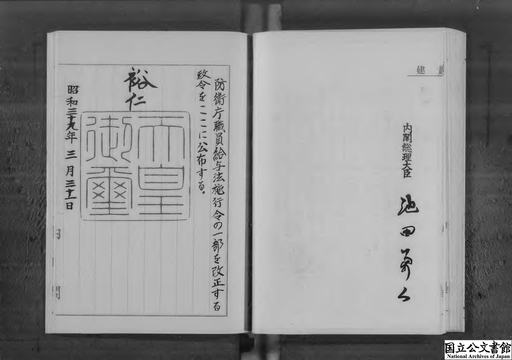 建
内閣総理大臣
池田勇人
防衛庁職員給与法施行令の一部を改正する
政令をここに公布する。
裕仁
天皇
御璽
昭和三十九年三月三十一日
国立公文書館
National Archives of Japan